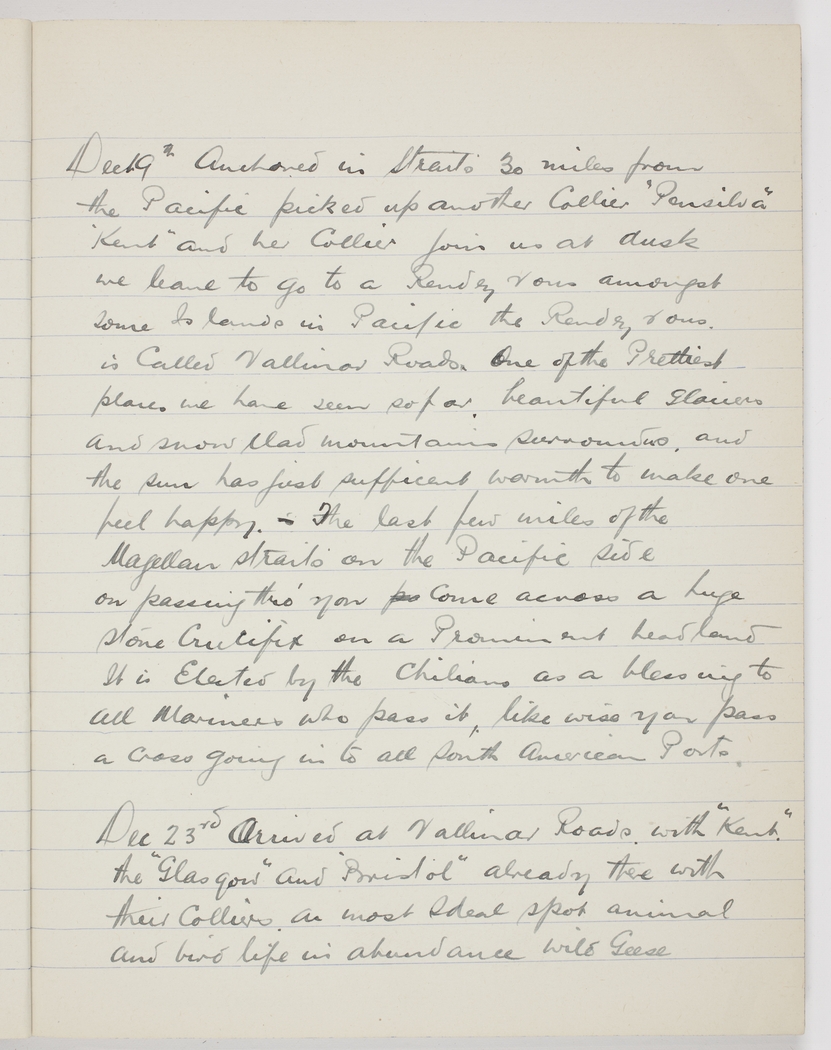 Dec 19th Anchored in Straits 30 miles from
the Pacific picked up another Collier "Pensilva"
"Kent" and her Collier join us at dusk
we leave to go to a Rendez vous amongst
some Islands in Pacific the Rendez vous.
is Called Vallinar Roads. One of the Prettiest
places we have seen so far, beautiful Glaciers
and snow Clad mountains surrounds, and
the sun has just sufficent warmth to make one
feel happy. - The last few miles of the
Magellan straits on the Pacific side
on passing thro' you ps Come across a huge
stone Crucifix on a Prominent headland
It is Erected by the Chilians as a blessing to
all Mariners who pass it, like wise you pass
a cross going in to all South American Ports.
Dec 23rd Arrived at Vallinar Roads. with "Kent".
the "Glasgow" and "Bristol" already there with
their Colliers. a most Ideal spot animal
and bird life in abundance wild Geese